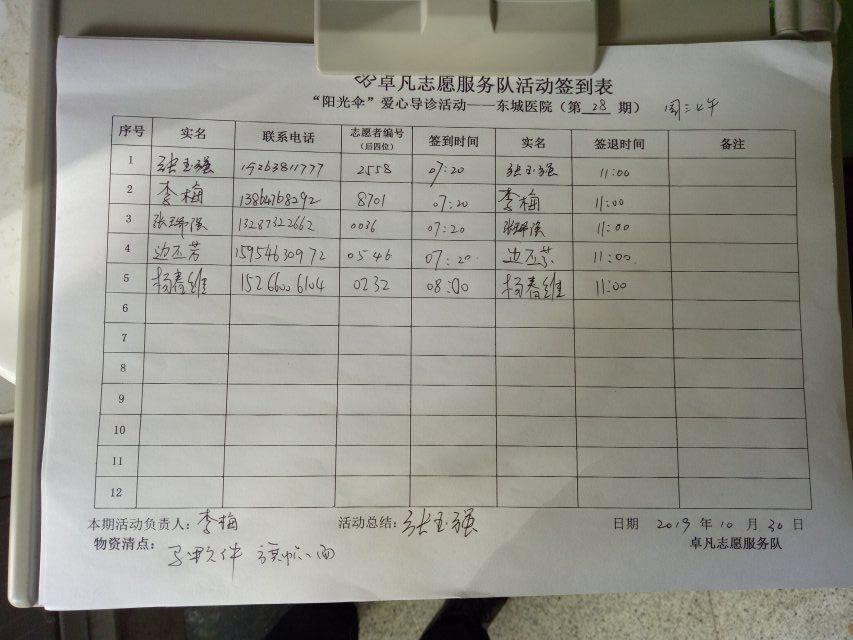 卓凡志愿服务队活动签到表
“阳光伞”爱心导诊活动——东城医院（第 28 期） 周三上午
序号 实名 联系电话 志愿者编号（后四位） 签到时间 实名 签退时间 备注
1 张玉强 15263811777 2558 07:20 张玉强 11:00
2 李梅 13864768292 8701 07:20 李梅 11:00
3 13287322662 0036 07:20 11:00
4 边丕芳 15954630972 0546 07:20 边丕芳 11:00
5 杨春维 15266006104 0232 08:00 杨春维 11:00
6
7
8
9
10
11
12
本期活动负责人：李梅 活动总结：张玉强 日期 2019 年 10 月 30 日
物资清点： 卓凡志愿服务队